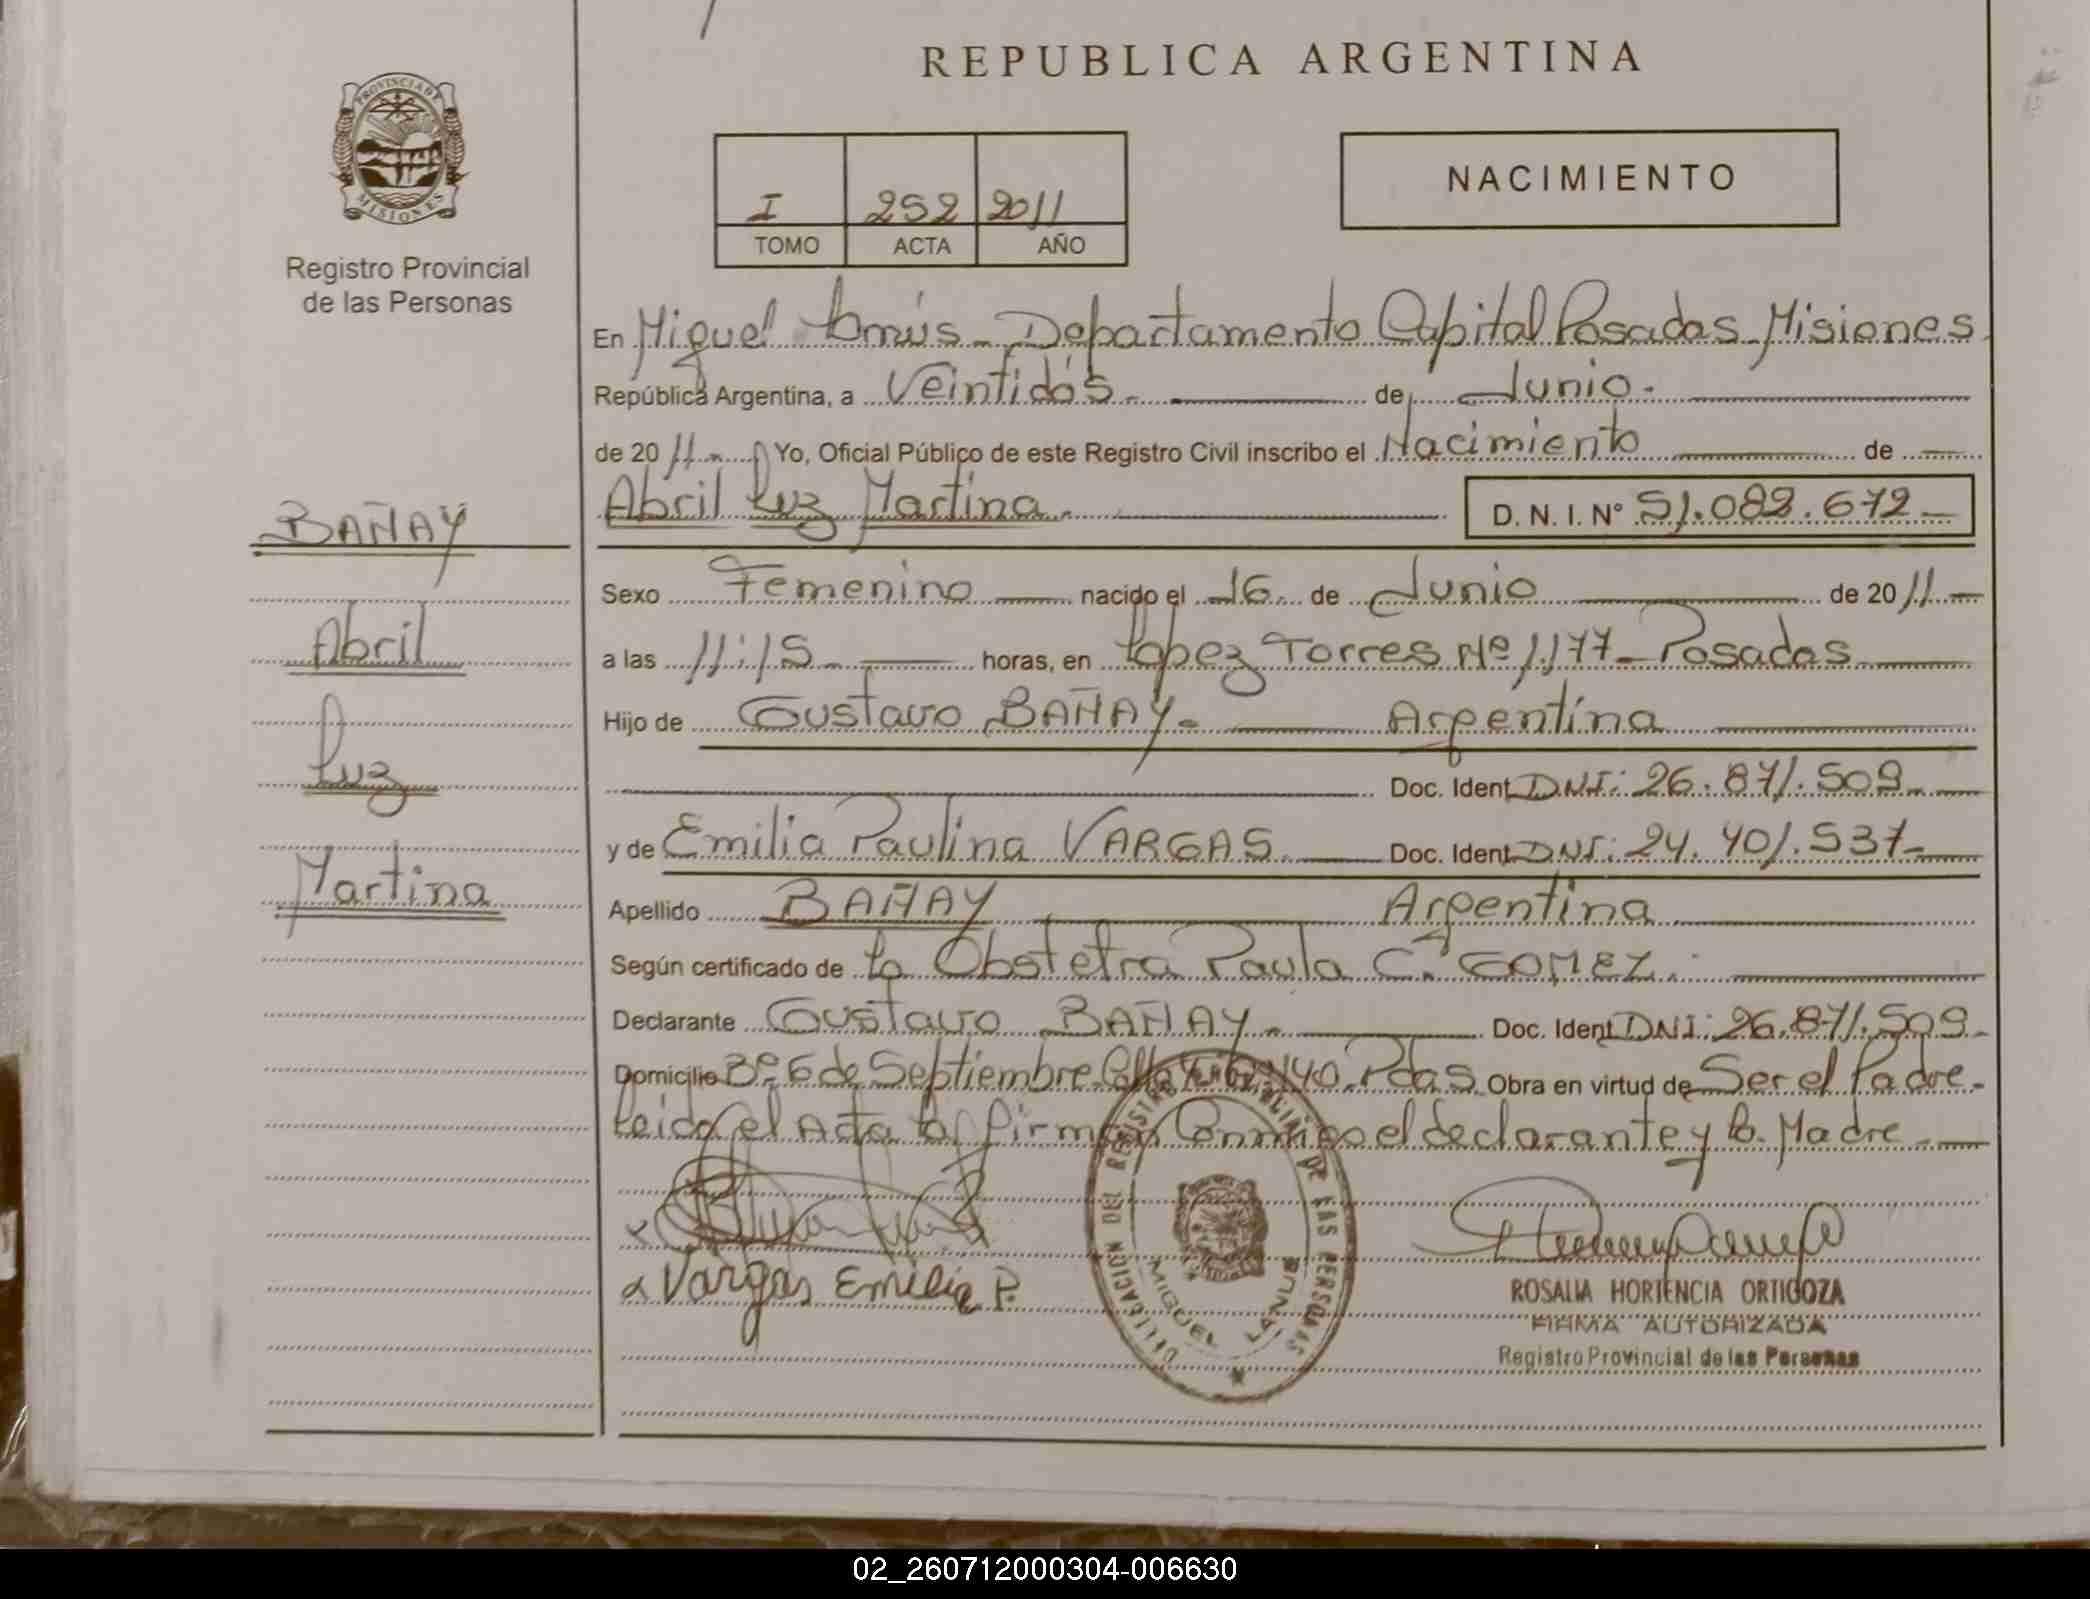 REPUBLICA ARGENTINA
PROVINCIA DE
MISIONES
Registro Provincial
de las Personas
I 252 2011
TOMO ACTA AÑO
NACIMIENTO
En Miguel Lanús - Departamento Capital Posadas Misiones
República Argentina, a Veintidós. de Junio.
de 2011 - Yo, Oficial Público de este Registro Civil inscribo el Nacimiento de
Abril Luz Martina. D. N. I. Nº 51.082.672
BAÑAY
Abril
Luz
Martina
Sexo Femenino nacido el 16 de Junio de 2011
a las 11:15 horas, en López Torres Nº 1177 - Posadas
Hijo de Gustavo BAÑAY - Argentina
Doc. Ident. DNI: 26.871.509
y de Emilia Paulina VARGAS Doc. Ident. DNI: 24.401.537
Apellido BAÑAY Argentina
Según certificado de La Obstetra Paula C. GOMEZ.
Declarante Gustavo BAÑAY - Doc. Ident. DNI: 26.871.509
Domicilio Bº 6 de Septiembre Pdas Obra en virtud de Ser el Padre
Leido el Acta la firman Conmigo el declarante y la Madre
Vargas Emilia P.
DELEGACION DEL REGISTRO PROVINCIAL DE LAS PERSONAS
MIGUEL LANUS
ROSALIA HORTENCIA ORTIGOZA
FIRMA AUTORIZADA
Registro Provincial de las Personas
02_260712000304-006630